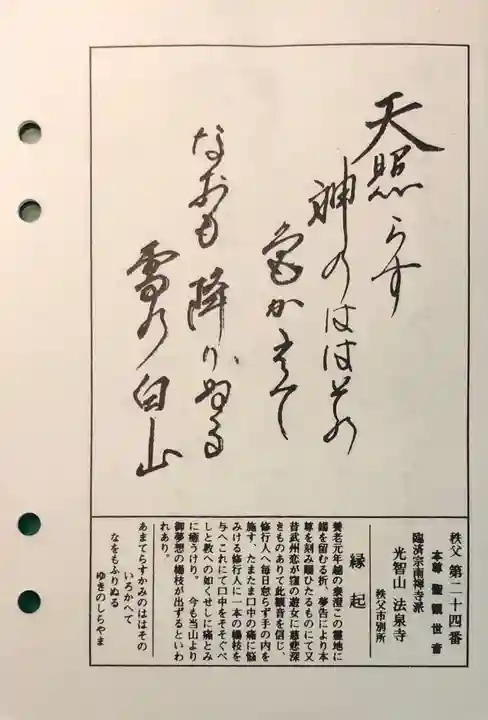 天照らす
神のははその
色かえて
なおも降りぬる
雪の白山
秩父 第二十四番
本尊 聖観世音
臨済宗南禅寺派
光智山 法泉寺
秩父市別所
縁起
養老元年越の泰澄この霊地に
錫を留むる折、夢告により本
尊を刻み賜ひたるものにて又
昔武州恋が窪の遊女に慈悲深
きものありて此観音を信じ、
修行人へ毎日怠らず手の内を
施す、たまたま口中の痛に悩
みける修行人に一本の楊枝を
与へこれにて口中をそそぐべ
しと教への如くせしに痛とみ
に癒うりけり。今も当山より
御夢想の楊枝が出ずるといわ
れあり。
あまてらすかみのははその
いろかへて
なをもふりぬる
ゆきのしらやま